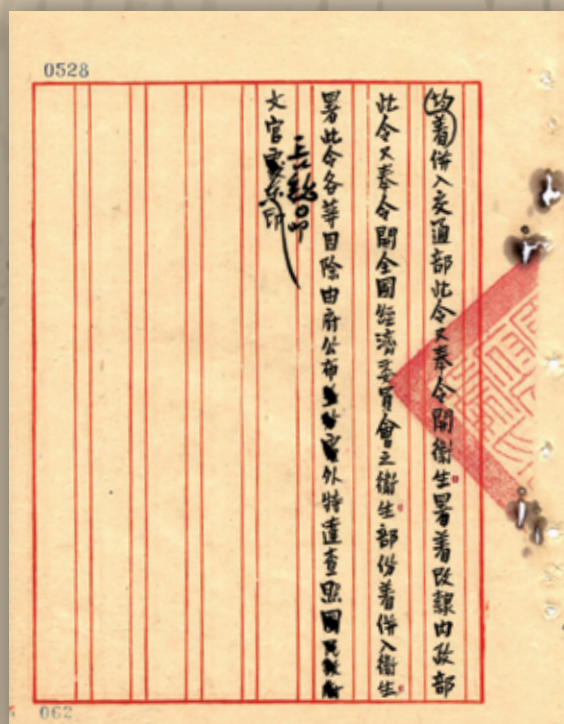 0528
均着併入交通部此令又奉令開衛生署着改隸內政部
此令又奉令開全國經濟委員會之衛生部份着併入衛生
署此令各等因除由府公布外特達查照國民政府
文官處印
062